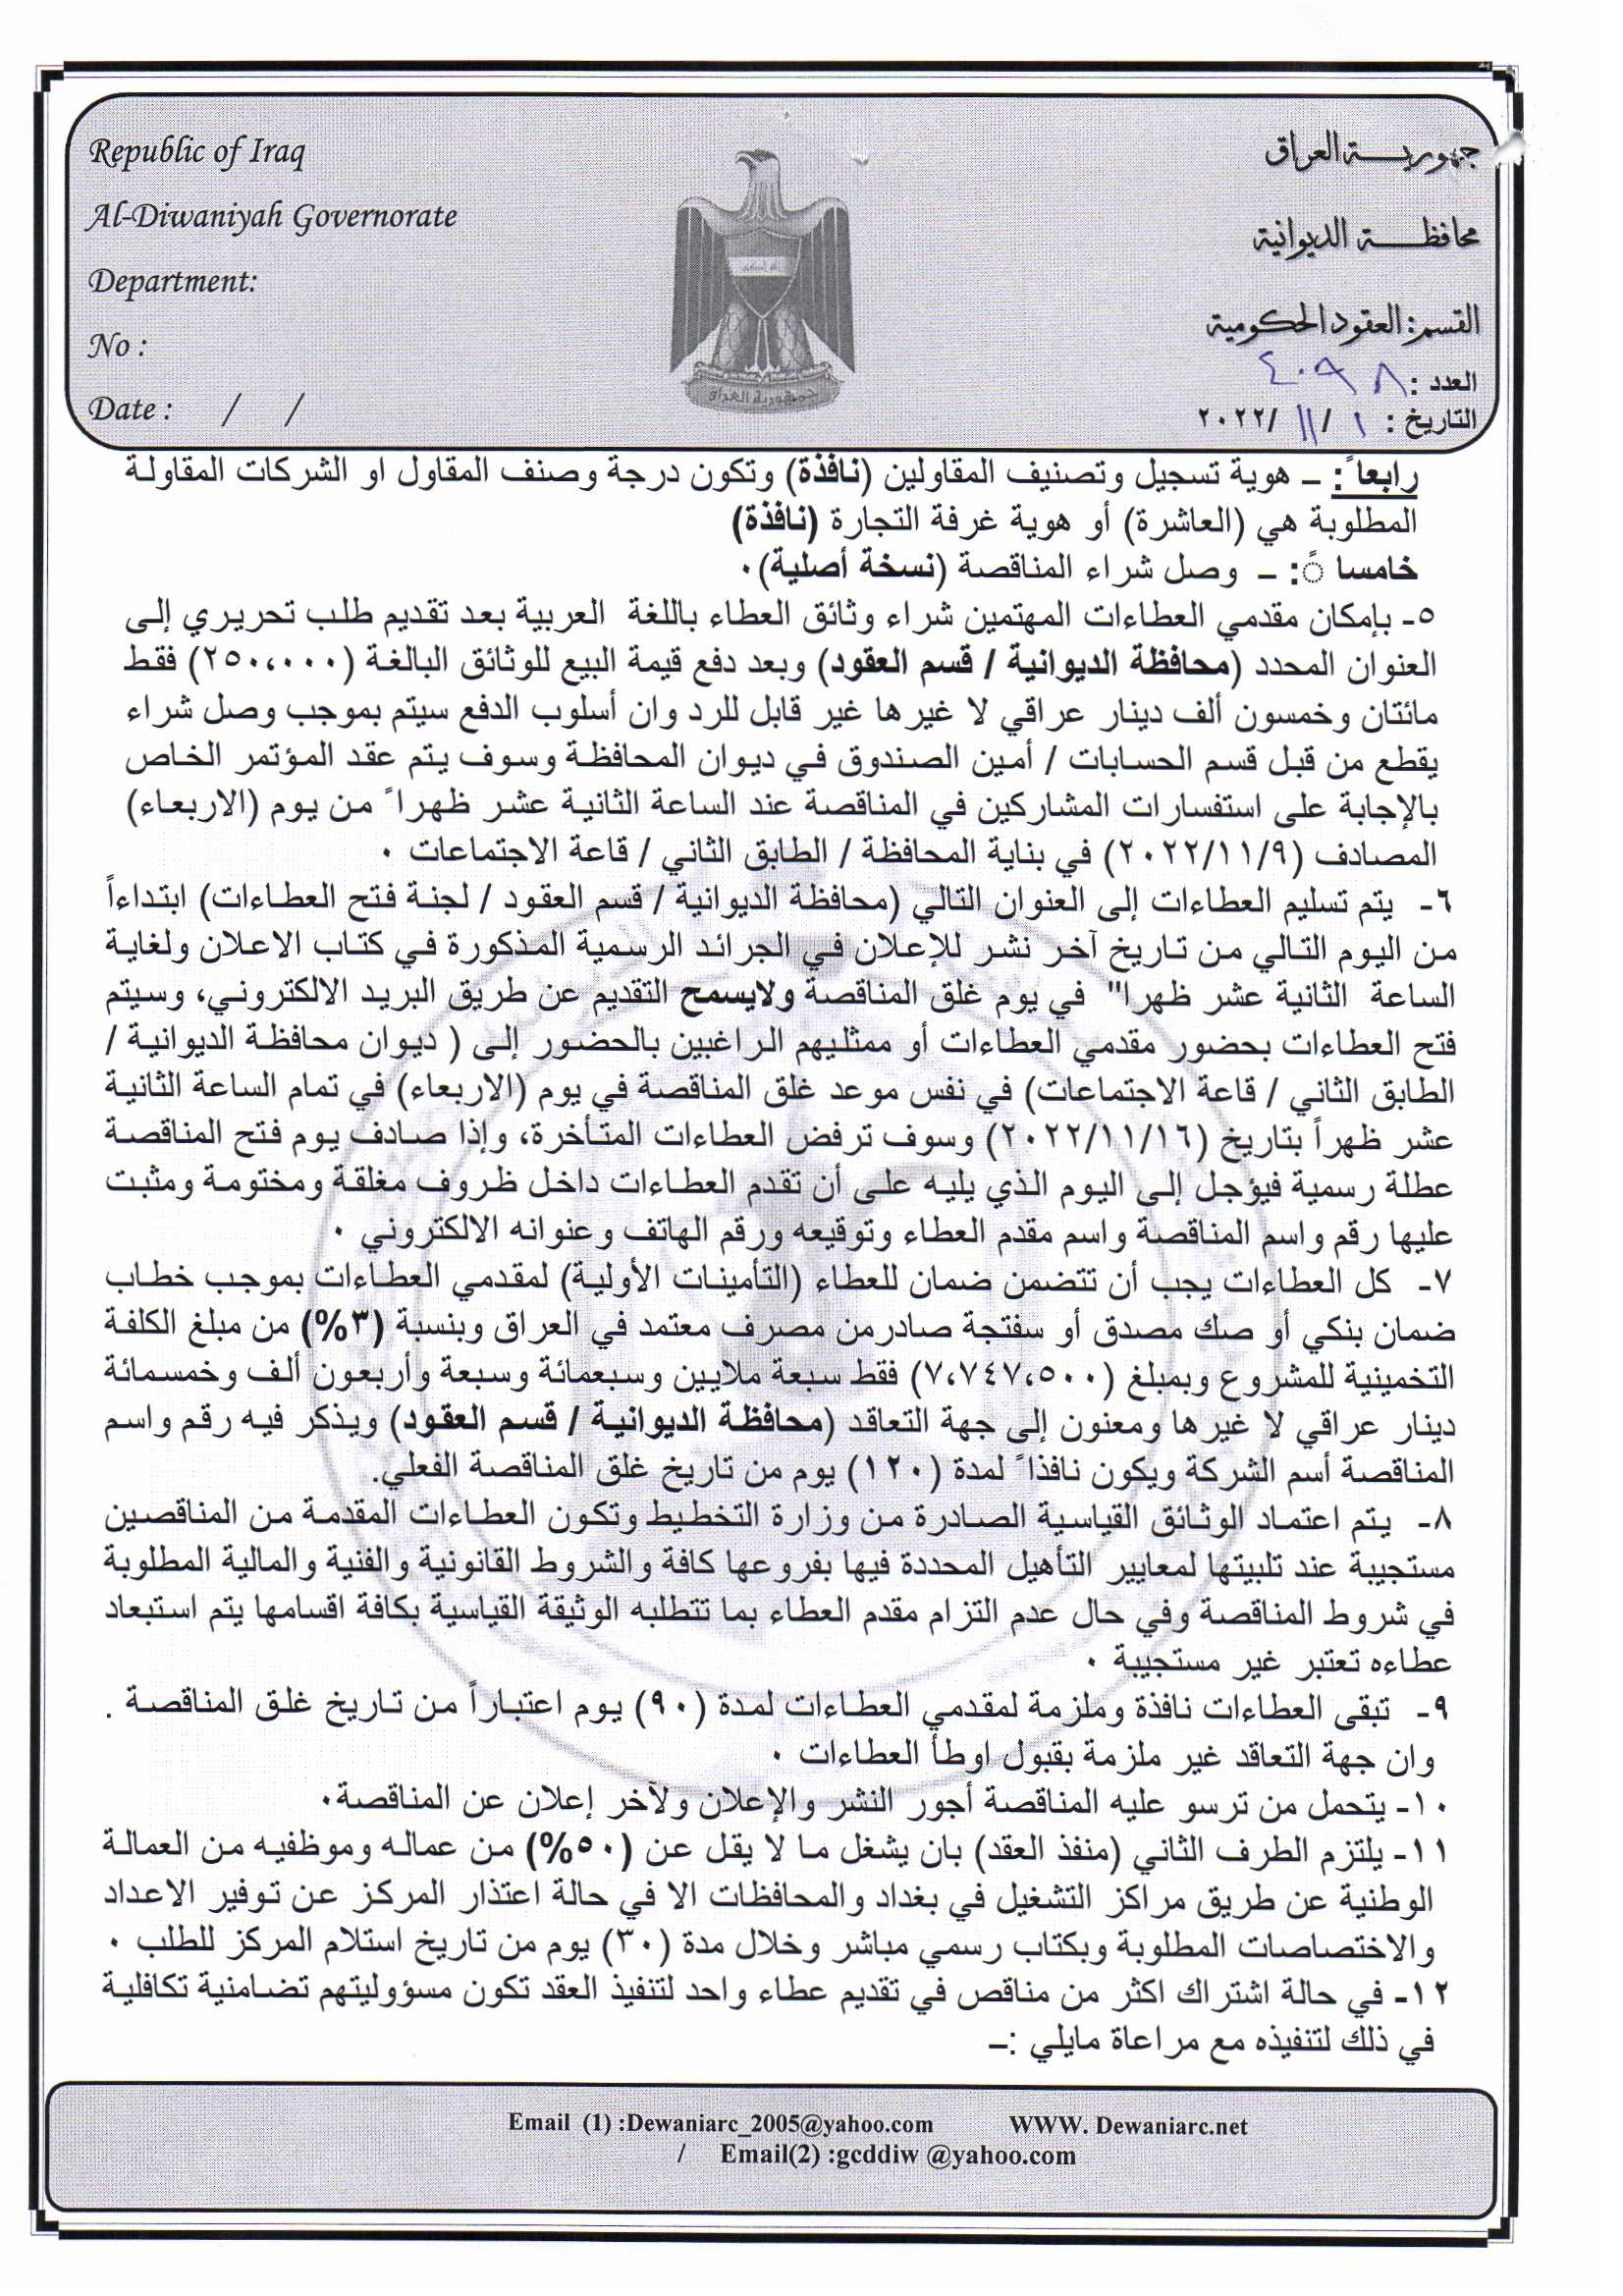 Republic of Iraq
Al-Diwaniyah Governorate
Department:
No :
Date : / /
جمهورية العراق
محافظة الديوانية
القسم: العقود الحكومية
العدد : ٤٠٩٨
التاريخ : ١ / ١١ / ٢٠٢٢
رابعا ً : – هوية تسجيل وتصنيف المقاولين (نافذة) وتكون درجة وصنف المقاول او الشركات المقاولة
المطلوبة هي (العاشرة) أو هوية غرفة التجارة (نافذة)
خامسا ً : – وصل شراء المناقصة (نسخة أصلية)٠
٥- بإمكان مقدمي العطاءات المهتمين شراء وثائق العطاء باللغة العربية بعد تقديم طلب تحريري إلى
العنوان المحدد (محافظة الديوانية / قسم العقود) وبعد دفع قيمة البيع للوثائق البالغة (٢٥٠،٠٠٠) فقط
مائتان وخمسون ألف دينار عراقي لا غيرها غير قابل للرد وان أسلوب الدفع سيتم بموجب وصل شراء
يقطع من قبل قسم الحسابات / أمين الصندوق في ديوان المحافظة وسوف يتم عقد المؤتمر الخاص
بالإجابة على استفسارات المشاركين في المناقصة عند الساعة الثانية عشر ظهرا ً من يوم (الاربعاء)
المصادف (٢٠٢٢/١١/٩) في بناية المحافظة / الطابق الثاني / قاعة الاجتماعات ٠
٦- يتم تسليم العطاءات إلى العنوان التالي (محافظة الديوانية / قسم العقود / لجنة فتح العطاءات) ابتداءاً
من اليوم التالي من تاريخ آخر نشر للإعلان في الجرائد الرسمية المذكورة في كتاب الاعلان ولغاية
الساعة الثانية عشر ظهرا" في يوم غلق المناقصة ولايسمح التقديم عن طريق البريد الالكتروني، وسيتم
فتح العطاءات بحضور مقدمي العطاءات أو ممثليهم الراغبين بالحضور إلى ( ديوان محافظة الديوانية /
الطابق الثاني / قاعة الاجتماعات) في نفس موعد غلق المناقصة في يوم (الاربعاء) في تمام الساعة الثانية
عشر ظهراً بتاريخ (٢٠٢٢/١١/١٦) وسوف ترفض العطاءات المتأخرة، وإذا صادف يوم فتح المناقصة
عطلة رسمية فيؤجل إلى اليوم الذي يليه على أن تقدم العطاءات داخل ظروف مغلقة ومختومة ومثبت
عليها رقم واسم المناقصة واسم مقدم العطاء وتوقيعه ورقم الهاتف وعنوانه الالكتروني ٠
٧- كل العطاءات يجب أن تتضمن ضمان للعطاء (التأمينات الأولية) لمقدمي العطاءات بموجب خطاب
ضمان بنكي أو صك مصدق أو سفتجة صادرمن مصرف معتمد في العراق وبنسبة (٣%) من مبلغ الكلفة
التخمينية للمشروع وبمبلغ (٧،٧٤٧،٥٠٠) فقط سبعة ملايين وسبعمائة وسبعة وأربعون ألف وخمسمائة
دينار عراقي لا غيرها ومعنون إلى جهة التعاقد (محافظة الديوانية / قسم العقود) ويذكر فيه رقم واسم
المناقصة أسم الشركة ويكون نافذا ً لمدة (١٢٠) يوم من تاريخ غلق المناقصة الفعلي.
٨- يتم اعتماد الوثائق القياسية الصادرة من وزارة التخطيط وتكون العطاءات المقدمة من المناقصين
مستجيبة عند تلبيتها لمعايير التأهيل المحددة فيها بفروعها كافة والشروط القانونية والفنية والمالية المطلوبة
في شروط المناقصة وفي حال عدم التزام مقدم العطاء بما تتطلبه الوثيقة القياسية بكافة اقسامها يتم استبعاد
عطاءه تعتبر غير مستجيبة ٠
٩- تبقى العطاءات نافذة وملزمة لمقدمي العطاءات لمدة (٩٠) يوم اعتباراً من تاريخ غلق المناقصة .
وان جهة التعاقد غير ملزمة بقبول اوطأ العطاءات ٠
١٠- يتحمل من ترسو عليه المناقصة أجور النشر والإعلان ولآخر إعلان عن المناقصة٠
١١- يلتزم الطرف الثاني (منفذ العقد) بان يشغل ما لا يقل عن (٥٠%) من عماله وموظفيه من العمالة
الوطنية عن طريق مراكز التشغيل في بغداد والمحافظات الا في حالة اعتذار المركز عن توفير الاعداد
والاختصاصات المطلوبة وبكتاب رسمي مباشر وخلال مدة (٣٠) يوم من تاريخ استلام المركز للطلب ٠
١٢- في حالة اشتراك اكثر من مناقص في تقديم عطاء واحد لتنفيذ العقد تكون مسؤوليتهم تضامنية تكافلية
في ذلك لتنفيذه مع مراعاة مايلي :–
Email (1) :Dewaniarc_2005@yahoo.com WWW. Dewaniarc.net
/ Email(2) :gcddiw @yahoo.com